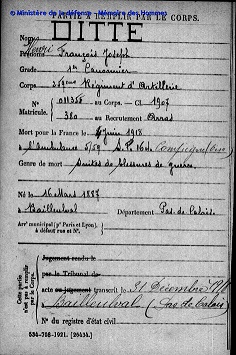 © Ministère de la défense - Mémoire des Hommes
PARTIE À REMPLIR PAR LE CORPS.
Nom DITTE
Prénoms Henri François Joseph
Grade 1er Canonnier
Corps Régiment d'Artillerie
N° 011358 au Corps. — Cl. 1907
Matricule. 380 au Recrutement Arras
Mort pour la France le juin 1918
à l'ambulance 5/59 S.P. 160
Genre de mort Suites de blessures de guerre
Né le 16 Mars 1887
à Bailleulval Département Pas de Calais
Arr' municipal (p' Paris et Lyon),
à défaut rue et N°.
Cette partie
n'est pas à remplir
par le Corps.
Jugement rendu le
par le Tribunal de
acte ou jugement transcrit le 31 Décembre
à Bailleulval (Pas de Calais)
N° du registre d'état civil
534-708-1921. [26434.]